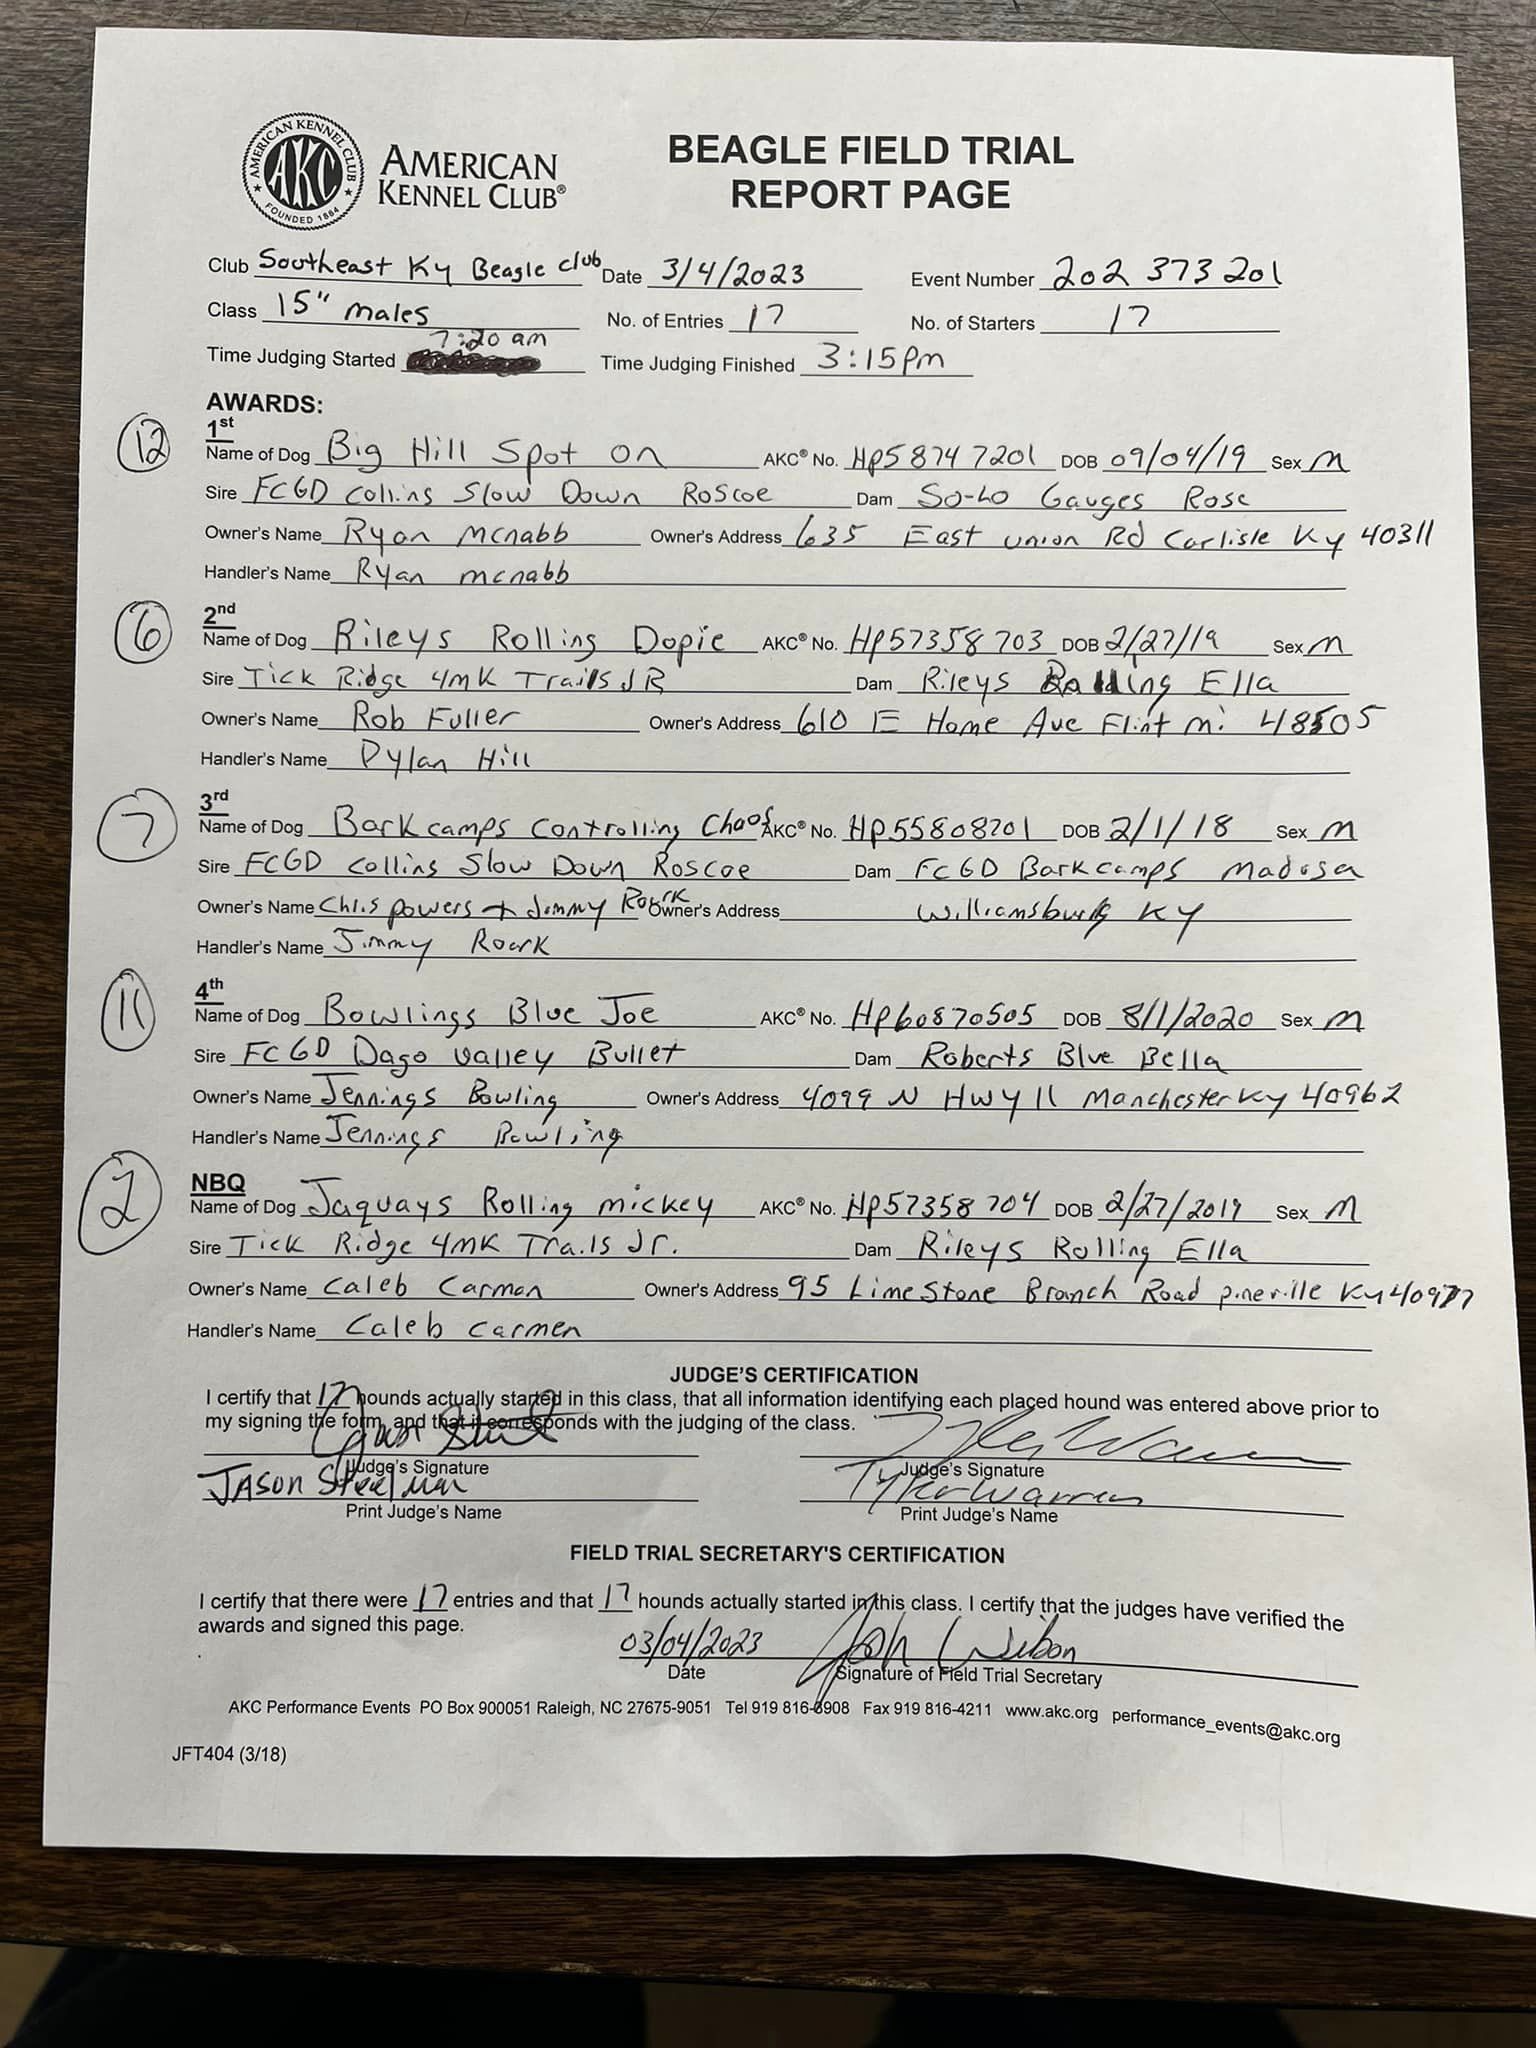 AMERICAN KENNEL CLUB
AKC
FOUNDED 1884
AMERICAN
KENNEL CLUB®
BEAGLE FIELD TRIAL
REPORT PAGE
Club Southeast Ky Beagle Club Date 3/4/2023 Event Number 202 373 201
Class 15" males No. of Entries 17 No. of Starters 17
Time Judging Started 7:20 am Time Judging Finished 3:15pm
AWARDS:
12
1st
Name of Dog Big Hill Spot on AKC® No. Hp58747201 DOB 09/04/19 Sex M
Sire FCGD Collins Slow Down Roscoe Dam So-Lo Gauges Rose
Owner's Name Ryan mcnabb Owner's Address 635 East union Rd Carlisle Ky 40311
Handler's Name Ryan mcnabb
6
2nd
Name of Dog Rileys Rolling Dopie AKC® No. Hp57358703 DOB 2/27/19 Sex M
Sire Tick Ridge 4mk Trails JR Dam Rileys Rolling Ella
Owner's Name Rob Fuller Owner's Address 610 E Home Ave Flint mi 48505
Handler's Name Dylan Hill
7
3rd
Name of Dog Barkcamps Controlling Chaos AKC® No. Hp55808201 DOB 2/1/18 Sex M
Sire FCGD Collins Slow Down Roscoe Dam FCGD Barkcamps Madusa
Owner's Name Chris powers + Jimmy Roark Owner's Address Williamsburg KY
Handler's Name Jimmy Roark
11
4th
Name of Dog Bowlings Blue Joe AKC® No. Hp60870505 DOB 8/1/2020 Sex M
Sire FCGD Dago valley Bullet Dam Roberts Blue Bella
Owner's Name Jennings Bowling Owner's Address 4099 N HWY 11 Manchester Ky 40962
Handler's Name Jennings Bowling
2
NBQ
Name of Dog Jaquays Rolling mickey AKC® No. Hp57358704 DOB 2/27/2019 Sex M
Sire Tick Ridge 4mk Trails Jr. Dam Rileys Rolling Ella
Owner's Name Caleb Carmen Owner's Address 95 LimeStone Branch Road pineville Ky 40977
Handler's Name Caleb Carmen
JUDGE'S CERTIFICATION
I certify that 17 hounds actually started in this class, that all information identifying each placed hound was entered above prior to
my signing the form, and that it corresponds with the judging of the class.
Tyler Warren
Judge's Signature Judge's Signature
JASON Steelman Tyler Warren
Print Judge's Name Print Judge's Name
FIELD TRIAL SECRETARY'S CERTIFICATION
I certify that there were 17 entries and that 17 hounds actually started in this class. I certify that the judges have verified the
awards and signed this page.
03/04/2023
Date Signature of Field Trial Secretary
AKC Performance Events PO Box 900051 Raleigh, NC 27675-9051 Tel 919 816-3908 Fax 919 816-4211 www.akc.org performance_events@akc.org
JFT404 (3/18)